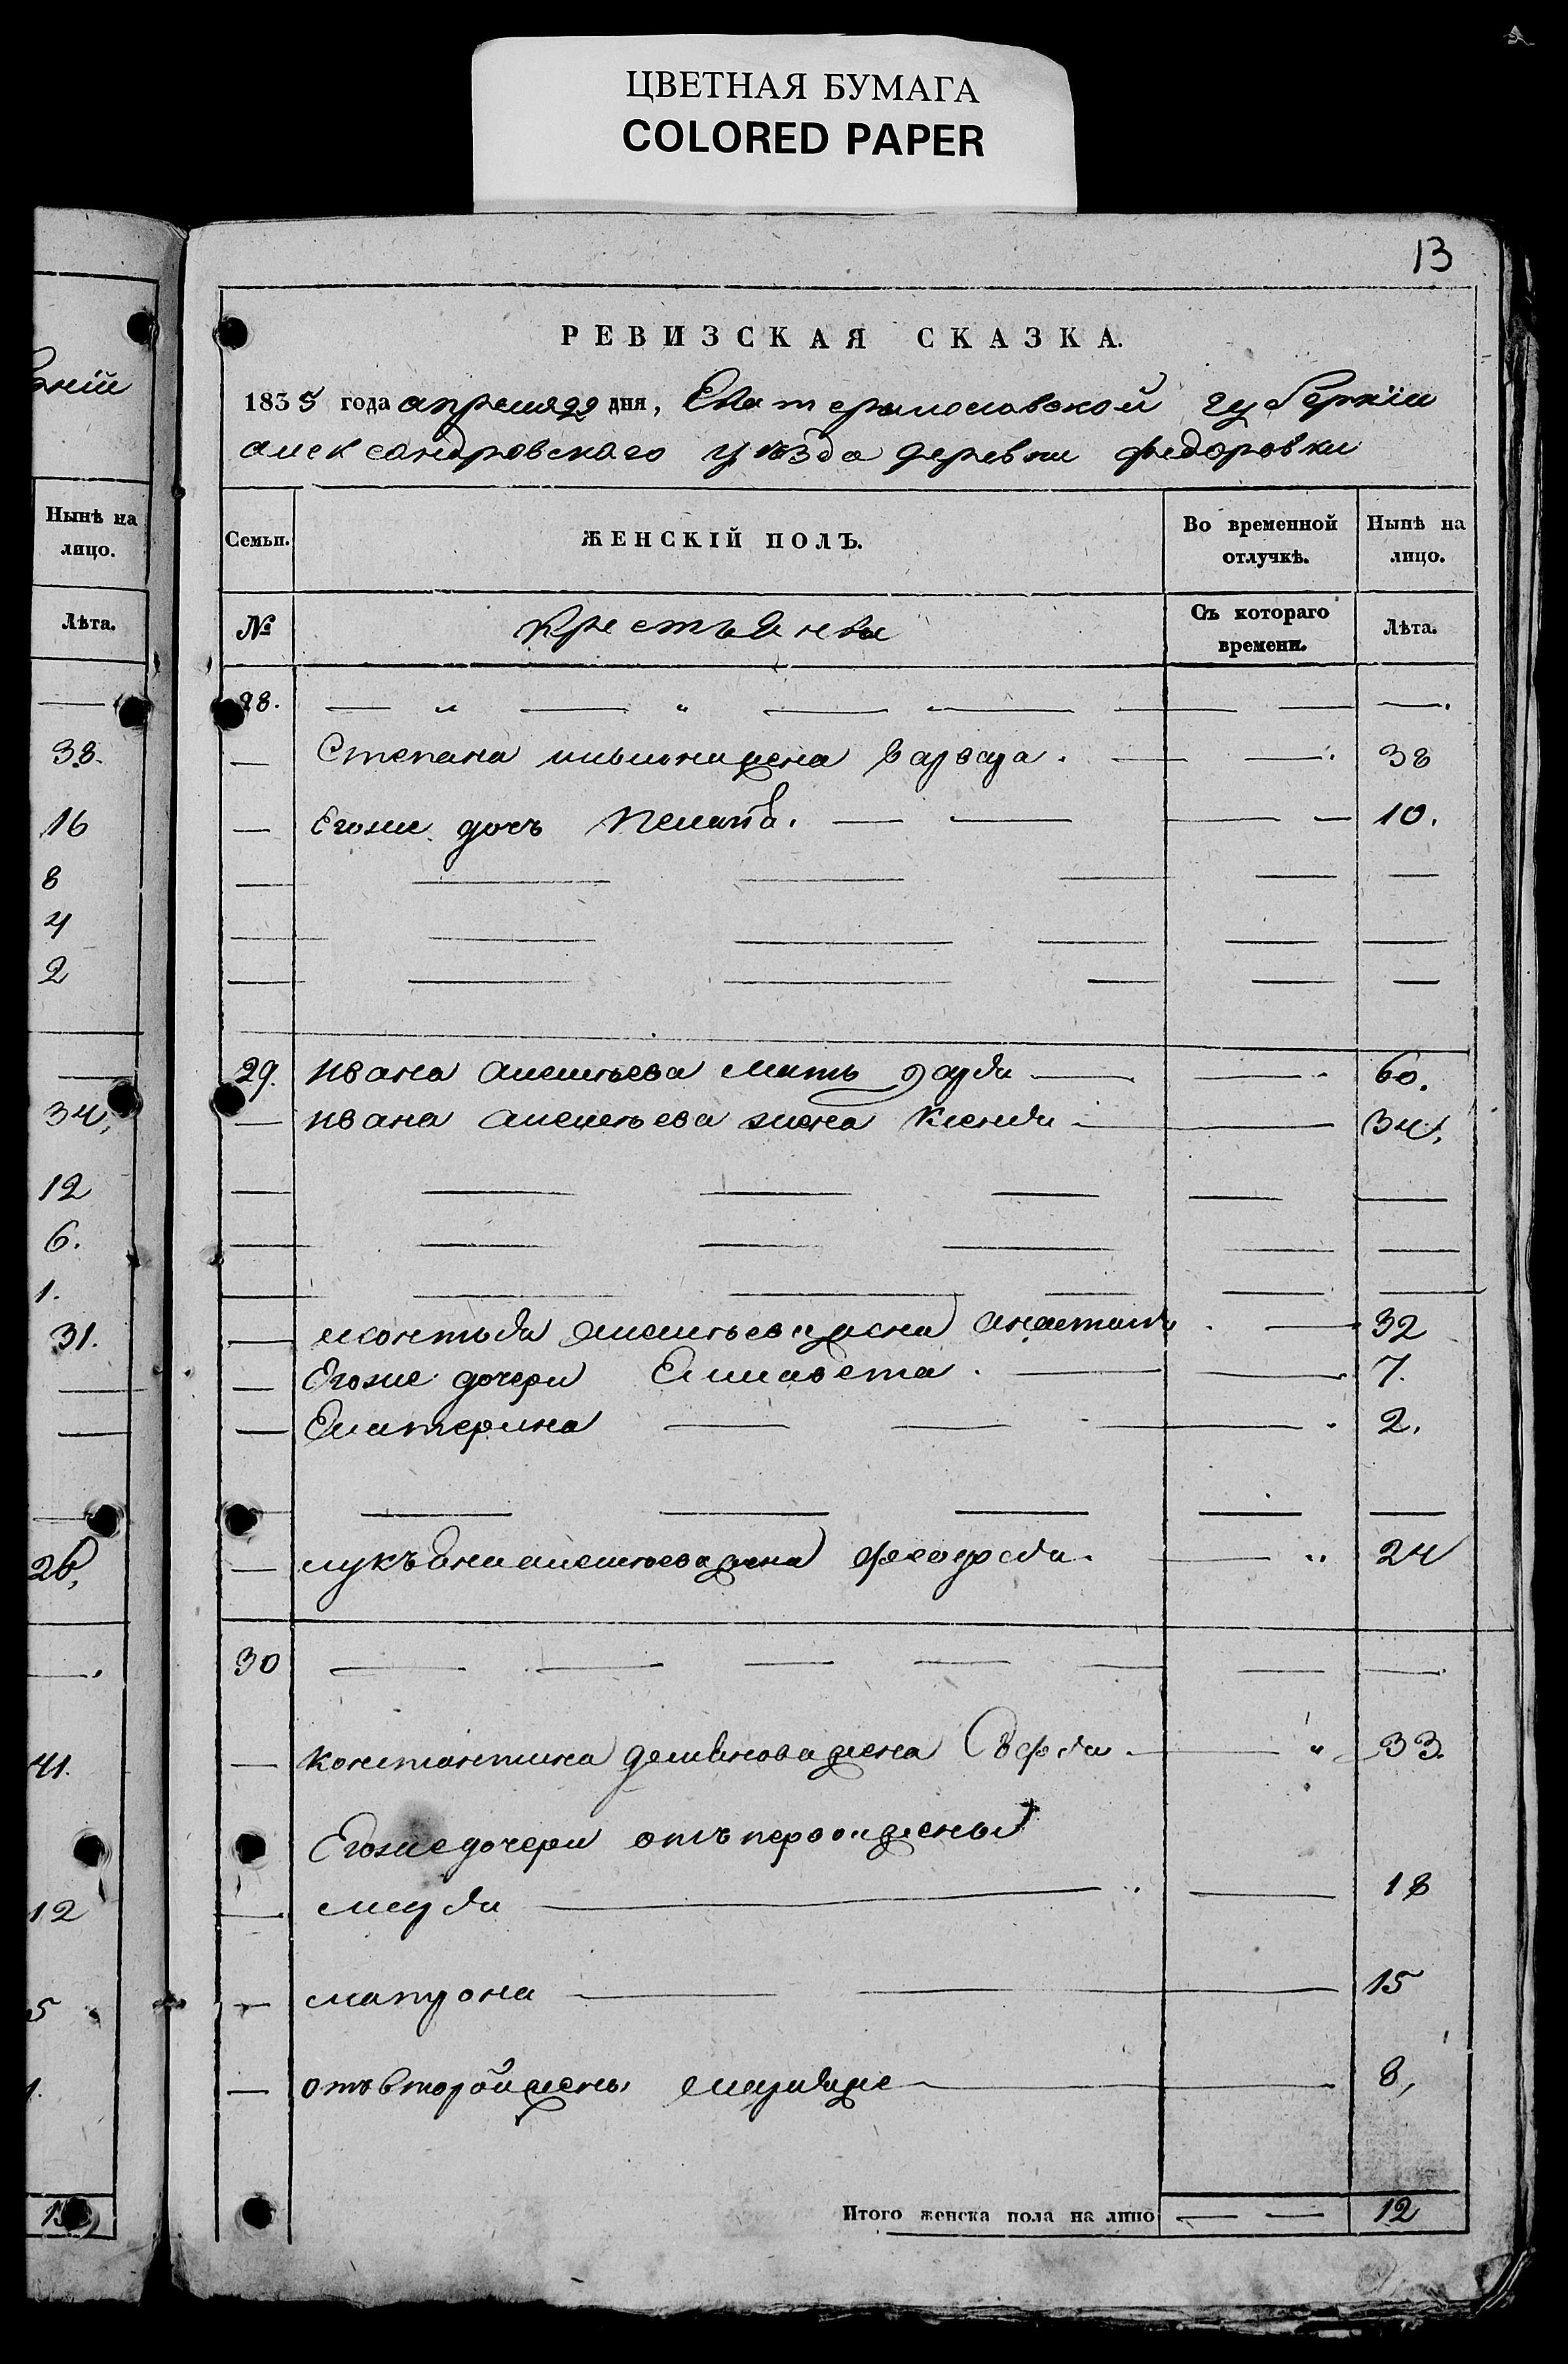 ЦВЕТНАЯ БУМАГА
COLORED PAPER
13
РЕВИЗСКАЯ СКАЗКА.
1835 года апреля 29 дня, Екатеринославской губернии
александровского уѣзда деревни федоровки
Нынѣ на лицо.
Лѣта.
38.
16
8
4
2
34.
12
6.
1.
31.
26.
41.
12
5
1.
Семьи. ЖЕНСКІЙ ПОЛЪ. Во временной отлучкѣ. Нынѣ на лицо.
№ крестьянка Съ котораго времени. Лѣта.
28. — — — — —.
— Степана жена варвара. — — 38
— Егоже дочь — — — 10.
29. Ивана мать дарья — — 60.
— Ивана жена — — 34.
— жена — 32
— Егоже дочери Елисавета. — — 7.
— Екатерина — — — 2.
— жена — 24
30 — — — — — — —
— константина жена — 33.
Егоже дочери отъ первой жены
— марья — — 18
— матрона — — — 15
— отъ второй жены — — 8,
Итого женска пола на лицо — — 12